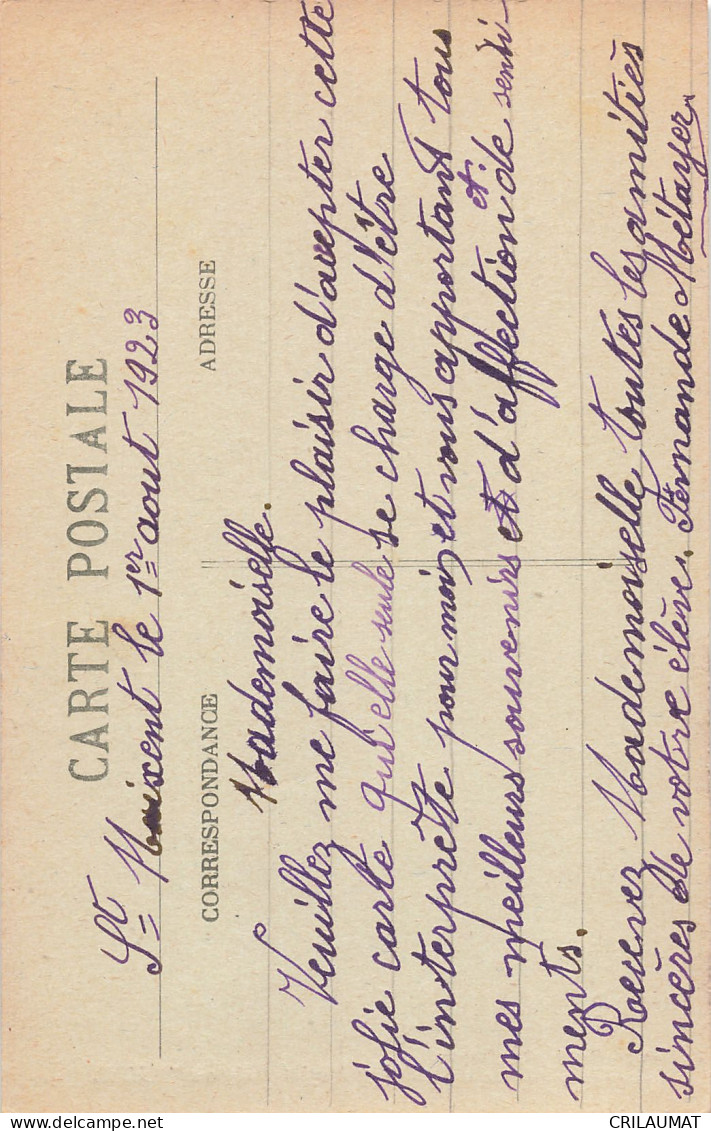 CARTE POSTALE
St Maixent le 1er aout 1923
CORRESPONDANCE
ADRESSE
Mademoiselle.
Veuillez me faire le plaisir d'accepter cette
jolie carte qu'elle seule se charge d'être
l'interprète pour moi, et vous apportant tous
mes meilleurs souvenirs et d'affection et de senti-
ments.
Recevez Mademoiselle toutes les amitiés
sincères de votre élève. Fernande Métayer
CRILAUMAT